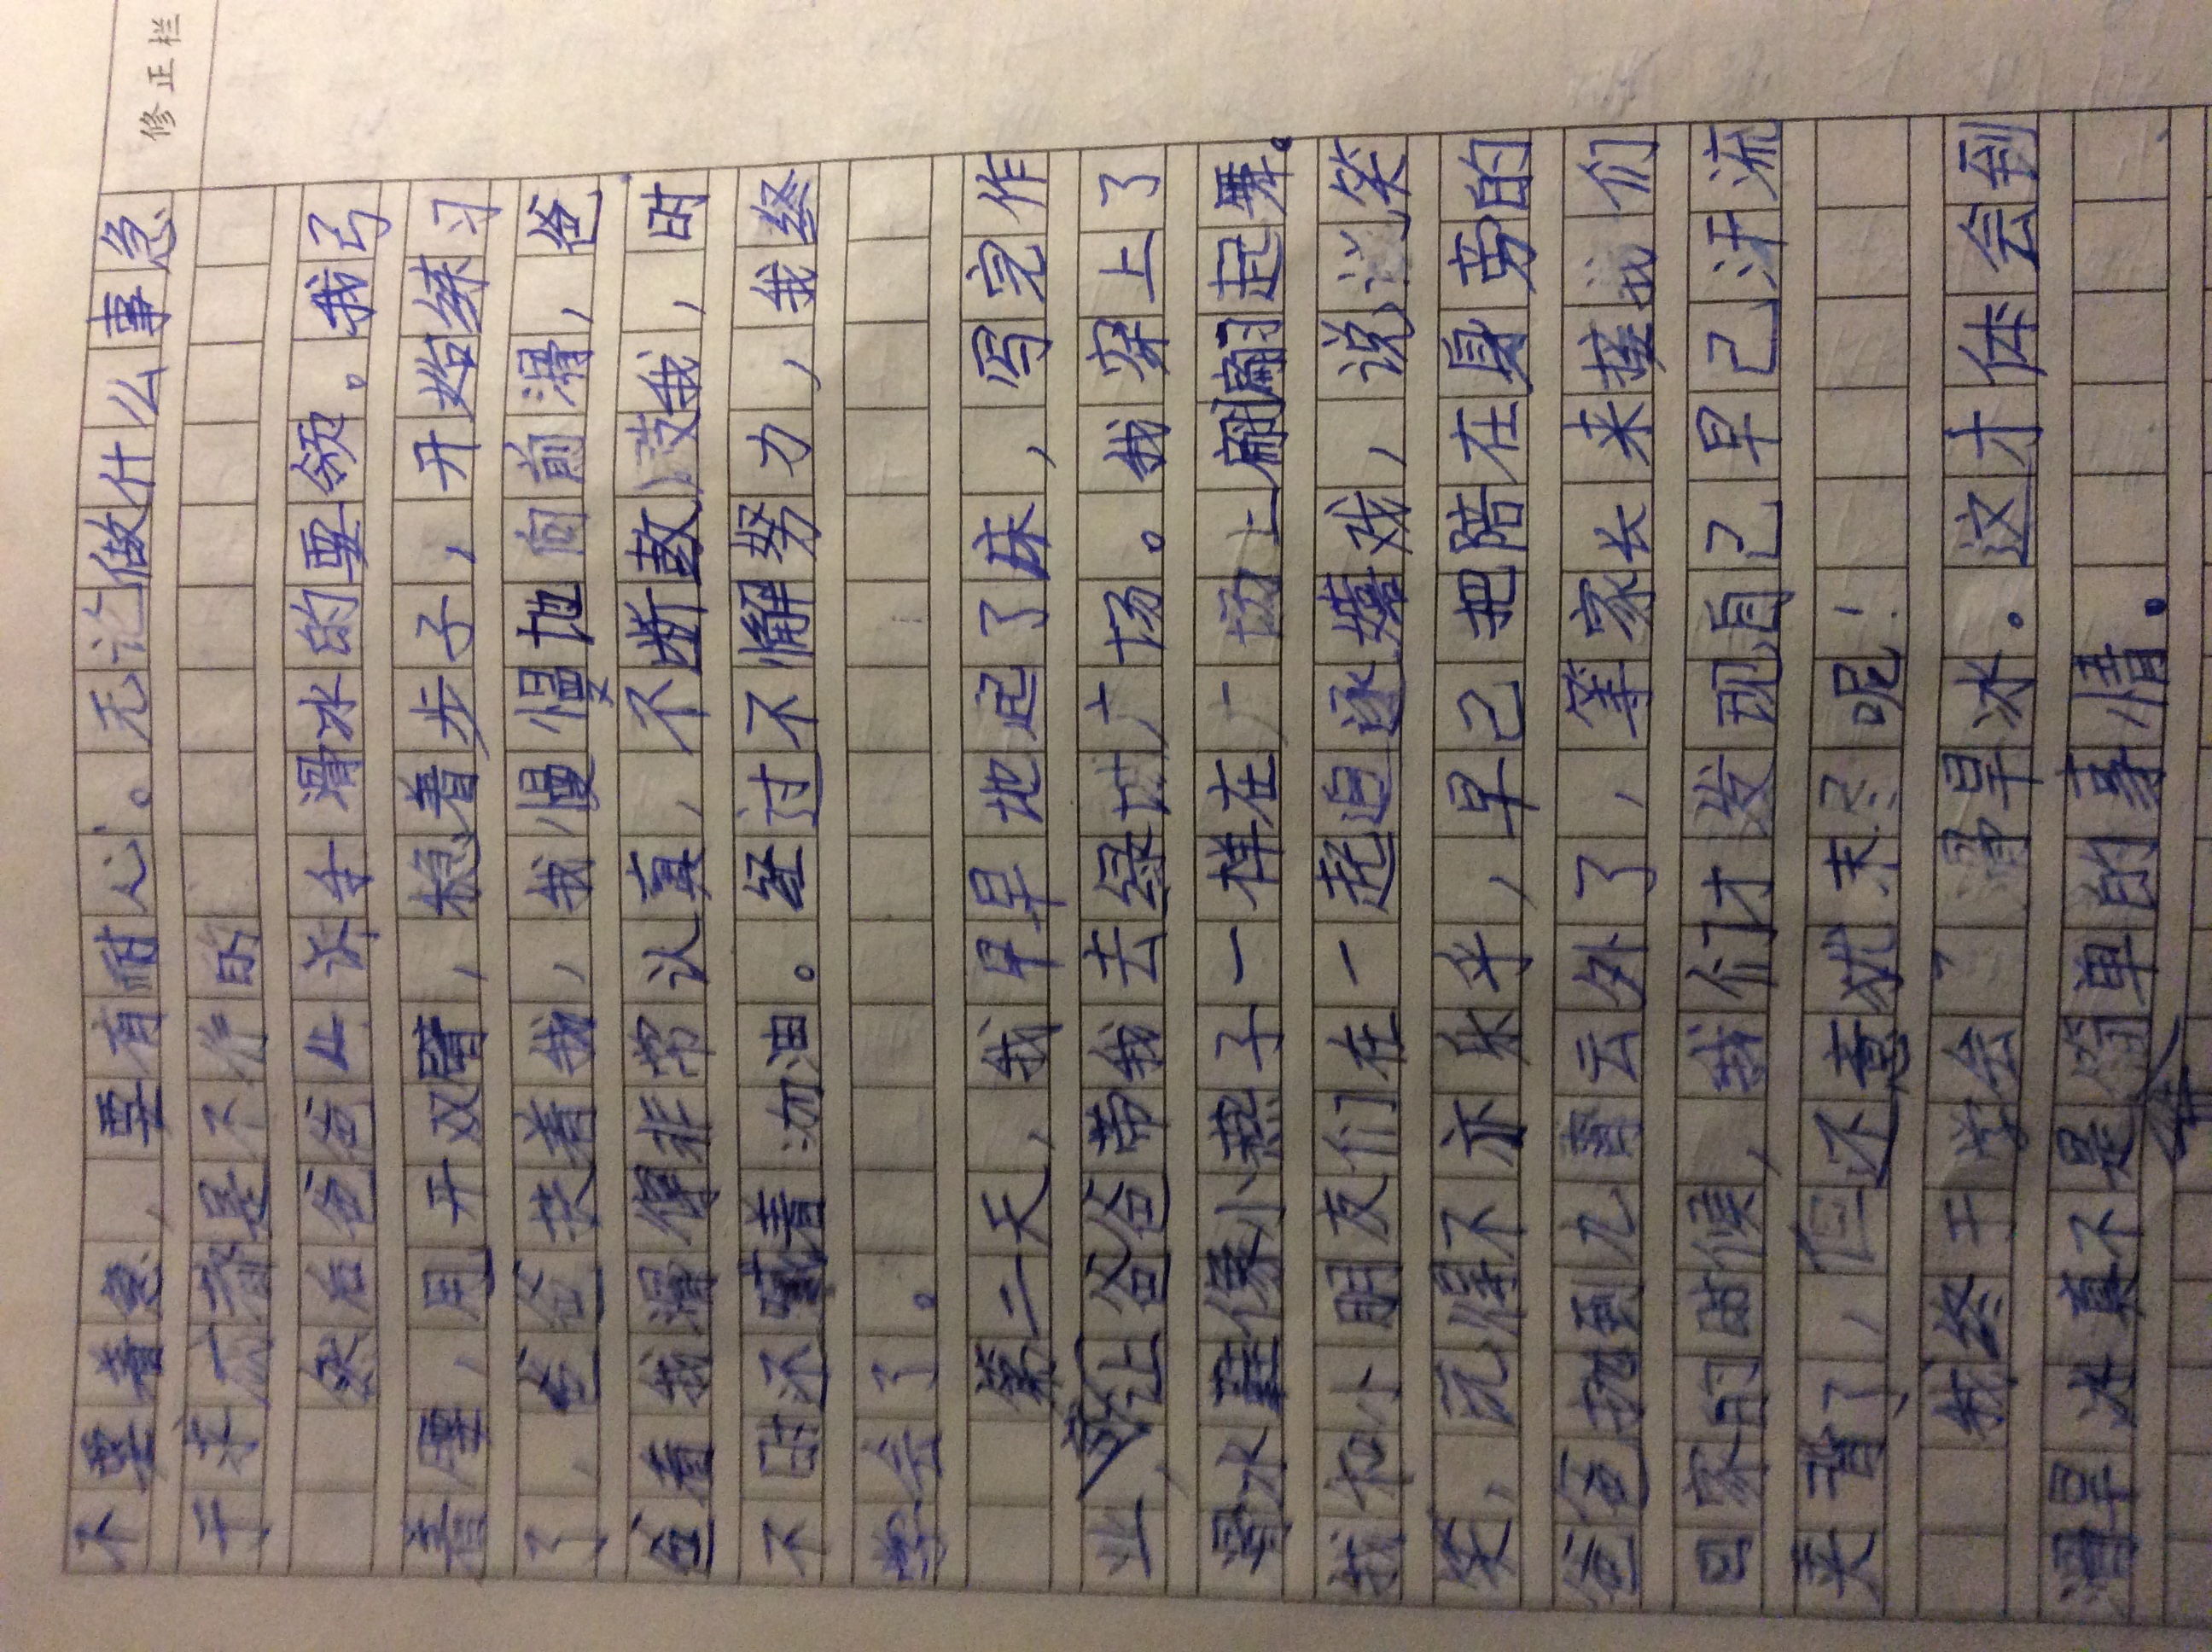 修正栏
不要着急，要有耐心。无论做什么事急
于求成都是不行的
然后爸爸告诉我滑冰的要领。我弓
着腰，用开双臂，稳着步子，开始练习
了，爸爸扶着我，我慢慢地向前滑，爸
爸看我滑得非常认真，不断鼓鼓我，时
不时还喊着加油。经过不懈努力，我终
学会了。
第二天，我早早地起了床，写完作
业，就让爸爸带我去绿地广场。我穿上了
滑冰鞋像小燕子一样在广场上翩翩起舞。
我和小朋友们在一起追逐嬉戏，说说笑
笑，玩得不亦乐乎，早已把陪在身旁的
爸爸抛到九霄云外了，等家长来接我们
回家的时候，我们才发现自己早已汗流
夹背了，但还意犹未尽呢！
我终于学会了滑旱冰。这才体会到
滑旱冰真不是简单的事情。